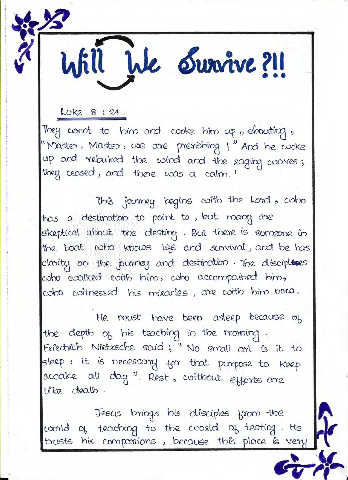 Will We Survive?!!
Luke 8:24
They went to him and woke him up, shouting,
"Master, Master, we are perishing!" And he woke
up and rebuked the wind and the raging waves;
they ceased, and there was a calm.'
This journey begins with the Lord, who
has a destination to point to, but many are
skeptical about the destiny. But there is someone in
the boat who knows life and survival, and he has
clarity on the journey and destination. The disciples
who walked with him, who accompanied him,
who witnessed his miracles, are with him now.
He must have been asleep because of
the depth of his teaching in the morning.
Friedrich Nietzsche said; "No small art is it to
sleep: it is necessary for that purpose to keep
awake all day". Rest, without efforts are
like death.
Jesus brings his disciples from the
world of teaching to the world of testing. He
trusts his companions, because this place is very